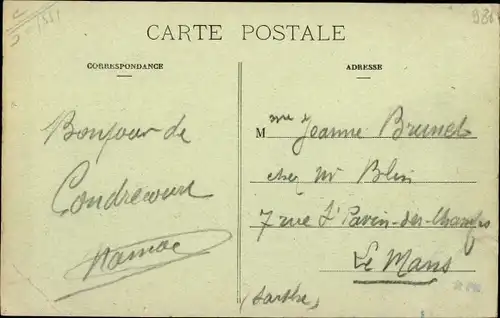 CARTE POSTALE
CORRESPONDANCE
ADRESSE
Bonjour de
Condrecourt
Mme Jeanne Brunet
chez Mr Blin
7 rue St Pavin-des-Champs
Le Mans
(Sarthe)